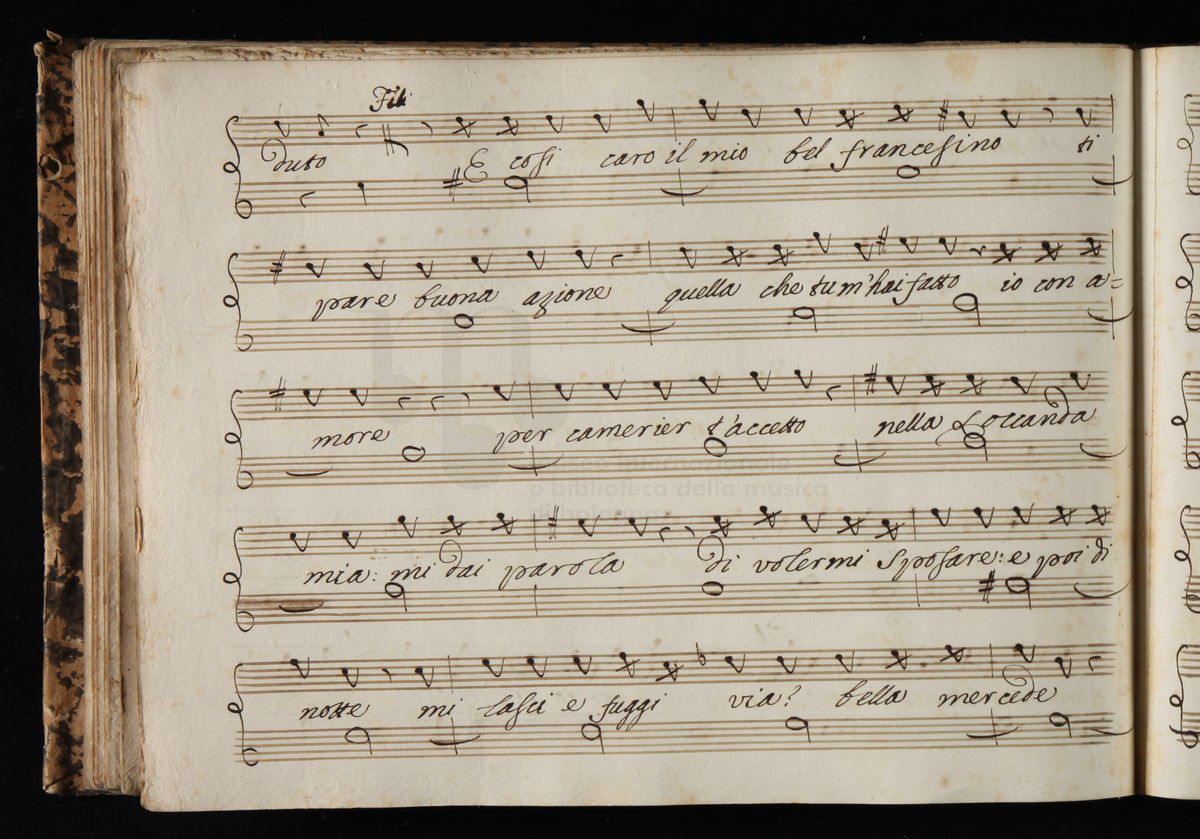 Fil:
duto E cosi caro il mio bel francesino ti
pare buona azione quella che tu m'hai fatto io con a=
more per camerier t'accetto nella Loccanda
mia: mi dai parola di volermi Sposare: e poi di
notte mi lasci e fuggi via? bella mercede
museo internazionale
e biblioteca della musica
di bologna